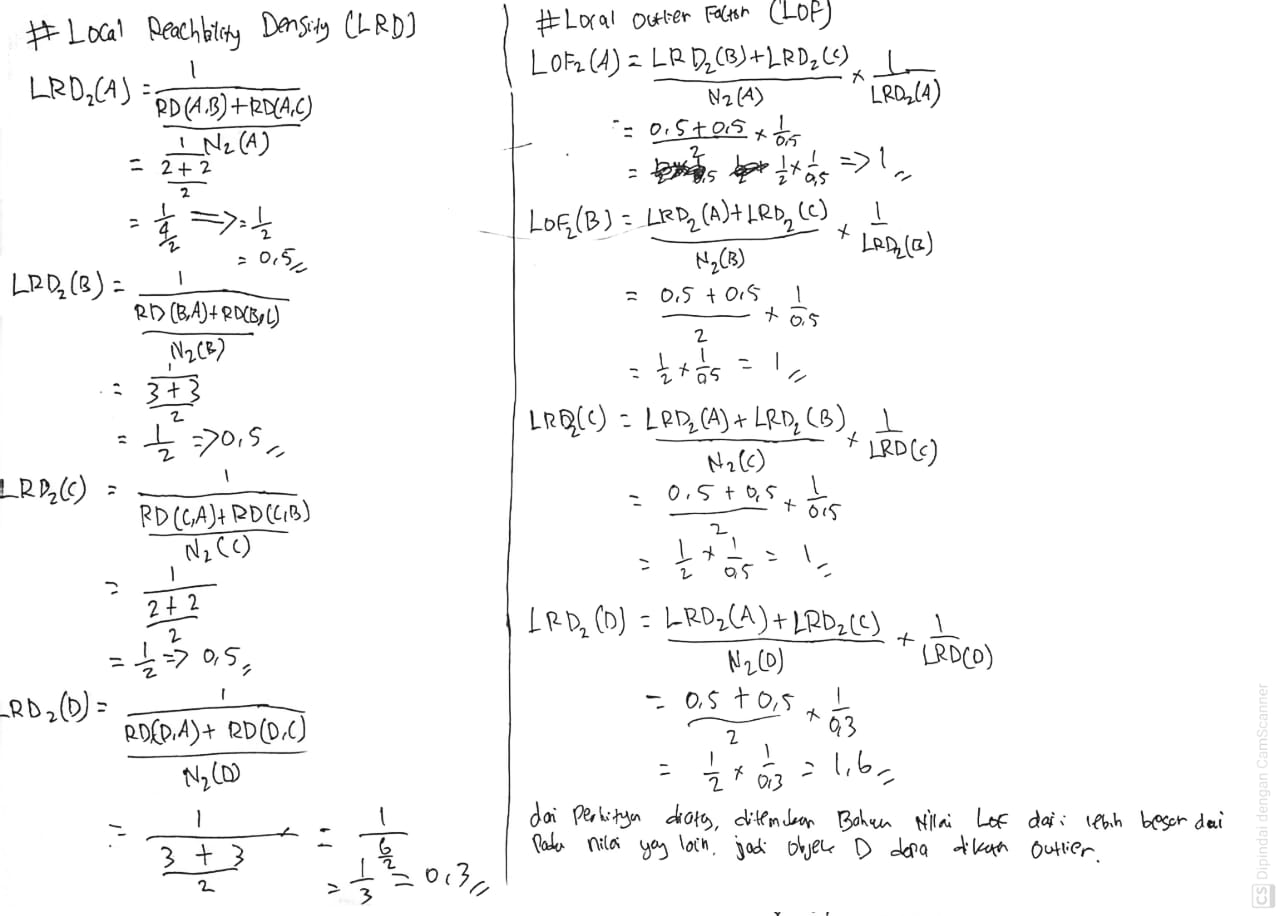 # Local Reachbility Density (LRD)
LRD₂(A) = 1
RD(A,B)+RD(A,C)
N₂(A)
= 1
2 + 2
2
= 1
4
2
=> = 1
2
= 0,5
LRD₂(B) = 1
RD(B,A)+RD(B,C)
N₂(B)
= 1
3 + 3
2
= 1
2
=> 0,5
LRD₂(C) = 1
RD(C,A)+RD(C,B)
N₂(C)
= 1
2 + 2
2
= 1
2
=> 0,5
LRD₂(D) = 1
RD(D,A) + RD(D,C)
N₂(D)
= 1
3 + 3
2
= 1
6
2
= 1
3
= 0,3
# Local Outlier Factor (LOF)
LOF₂(A) = LRD₂(B)+LRD₂(C) × 1
N₂(A) LRD₂(A)
= 0,5+0,5 × 1
2 0,5
= 1 × 1 => 1
2 0,5
LOF₂(B) = LRD₂(A)+LRD₂(C) × 1
N₂(B) LRD₂(B)
= 0,5 + 0,5 × 1
2 0,5
= 1 × 1 = 1
2 0,5
LRD₂(C) = LRD₂(A)+ LRD₂(B) × 1
N₂(C) LRD(C)
= 0,5 + 0,5 × 1
2 0,5
= 1 × 1 = 1
2 0,5
LRD₂(D) = LRD₂(A)+LRD₂(C) × 1
N₂(D) LRD(D)
= 0,5 + 0,5 × 1
2 0,3
= 1 × 1 = 1,6
2 0,3
dari diatas, ditemukan Bahwa Nilai LOF dari lebih besar dari
Pada nilai yang lain. jadi objek D dapa Outlier.
CS Dipindai dengan CamScanner